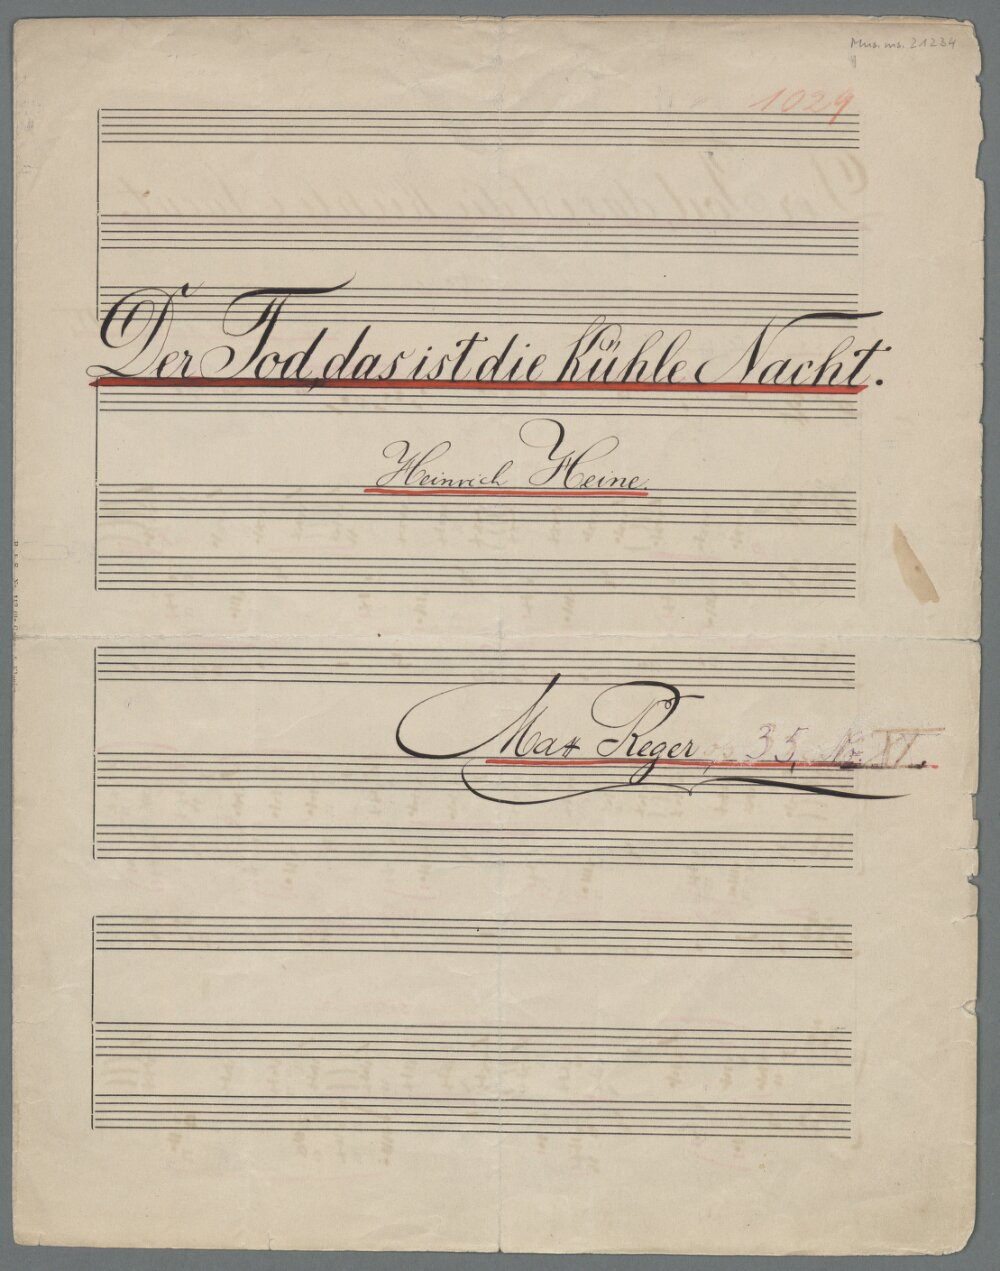 Mus. ms. 21234
1029
Der Tod, das ist die kühle Nacht.
Heinrich Heine.
Max Reger, op. 35, No.